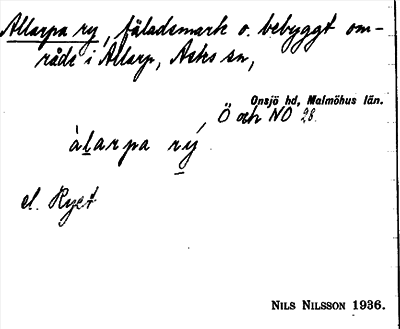 Allarpa ry, fäladsmark o. bebyggt om-
råde i Allarp, Asks sn,
Onsjö hd, Malmöhus län.
Ö och NO 28.
àlarpa rý
el. Ryet
NILS NILSSON 1936.